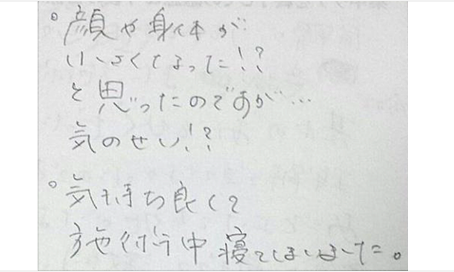 。顔や身体が
小さくなった!?
と思ったのですが…
気のせい!?
。気持ち良くて
施術中寝てしまいました。